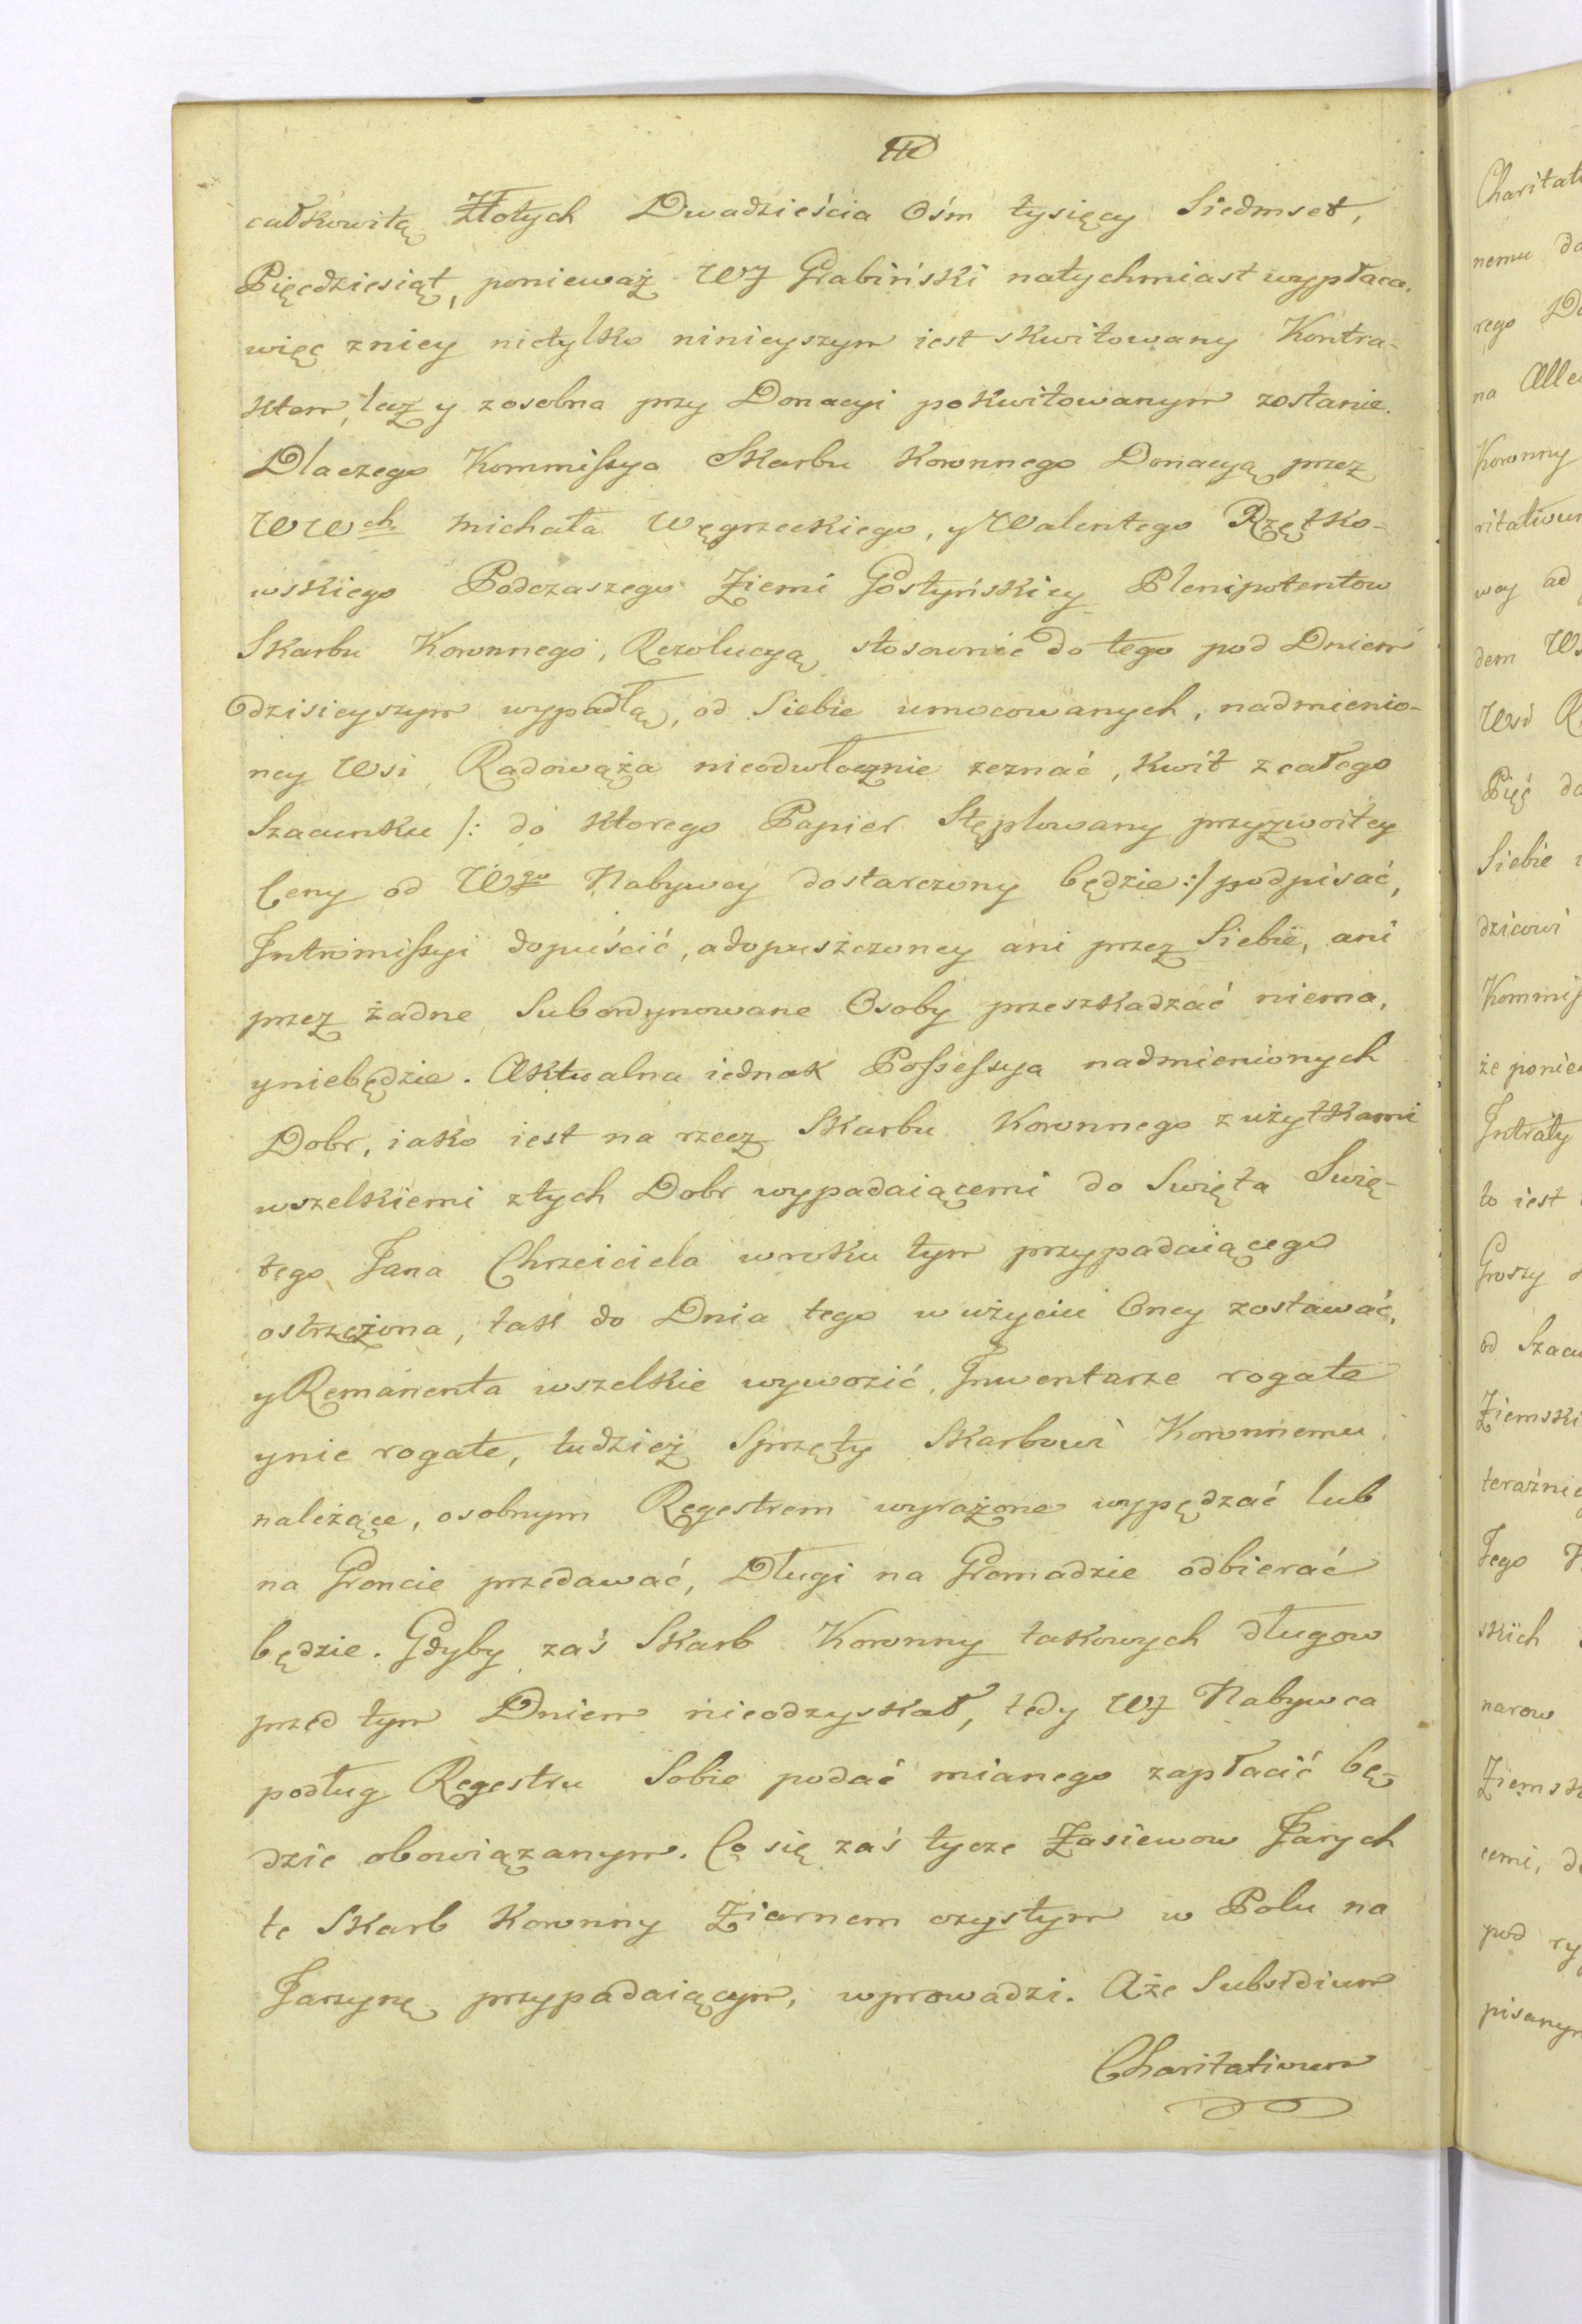 całkowitą Złotych Dwadzieścia Ośm tysięcy Siedmset,
Pięćdziesiąt, ponieważ WJ Grabiński natychmiast wypłaca,
więc zniey nietylko ninieyszym iest skwitowany Kontra-
ktem, lecz y zosobna przy Donacyi pokwitowanym zostanie.
Dlaczego Kommissya Skarbu Koronnego Donacyą przez
WWch Michała Węgrzeckiego, y Walentego Rzętko-
wskiego Podczaszego Ziemi Gostyńskiey Plenipotentow
Skarbu Koronnego, Rezolucyą stosownie do tego pod Dniem
dzisieyszym wypadłą, od Siebie umocowanych, nadmienio-
ney Wsi Radowąża nieodwłocznie zeznać, Kwit z całego
Szacunku /: do ktorego Papier Stęplowany przyzwoitey
Ceny od Wgo Nabywcy dostarczony będzie :/ podpisać,
Intromissyi dopuścić, adopuszczoney ani przez Siebie, ani
przez żadne Subordynowane Osoby przeszkadzać niema,
yniebędzie. Aktualna iednak Possessya nadmienionych
Dobr, iako iest na rzecz Skarbu Koronnego z użytkami
wszelkiemi ztych Dobr wypadaiącemi do Swięta Swię-
tego Jana Chrzciciela wroku tym przypadaiącego
ostrzeżona, tak do Dnia tego w użyciu Oney zostawać,
y Remanenta wszelkie wywozić, Inwentarze rogate
ynie rogate, tudzież Sprzęty Skarbowi Koronnemu
należące, osobnym Regestrem wyrażone wypędzać lub
na Gruncie przedawać, Długi na Gromadzie odbierać
będzie. Gdyby zaś Skarb Koronny takowych długow
przed tym Dniem nieodzyskał, tedy WJ Nabywca
podług Regestru Sobie podać mianego zapłacić bę-
dzie obowiązanym. Co się zaś tycze Zasiewow Jarych
te Skarb Koronny Ziarnem czystym w Polu na
Jarzynę przypadaiącym, wprowadzi. Aże Subsidium
Charitativum